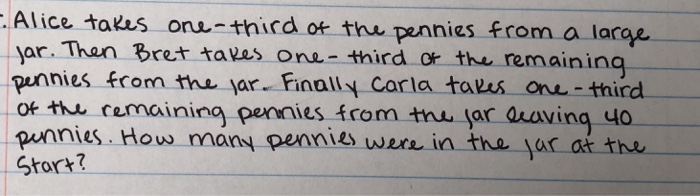 . Alice takes one-third of the pennies from a large
jar. Then Bret takes one-third of the remaining
pennies from the jar. Finally Carla takes one-third
of the remaining pennies from the jar leaving 40
pennies. How many pennies were in the jar at the
Start?